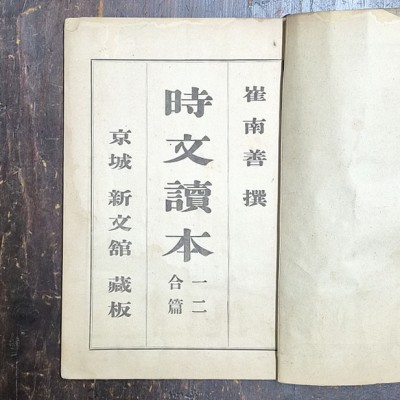 崔南善 撰
時文讀本 一二合篇
京城 新文舘 藏板